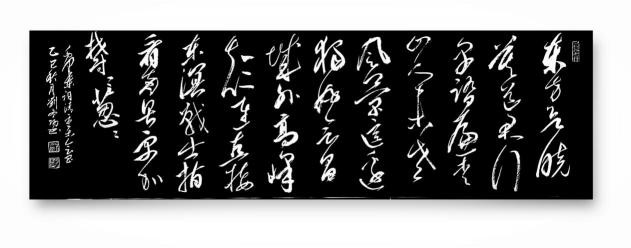 东方欲晓
莫道君行
早踏遍青
山人未老
风景这边
独好会昌
城外高峰
颠连直接
东溟战士指
看南粤更加
郁郁葱葱
毛泽东词清平乐会昌
乙巳秋月刘